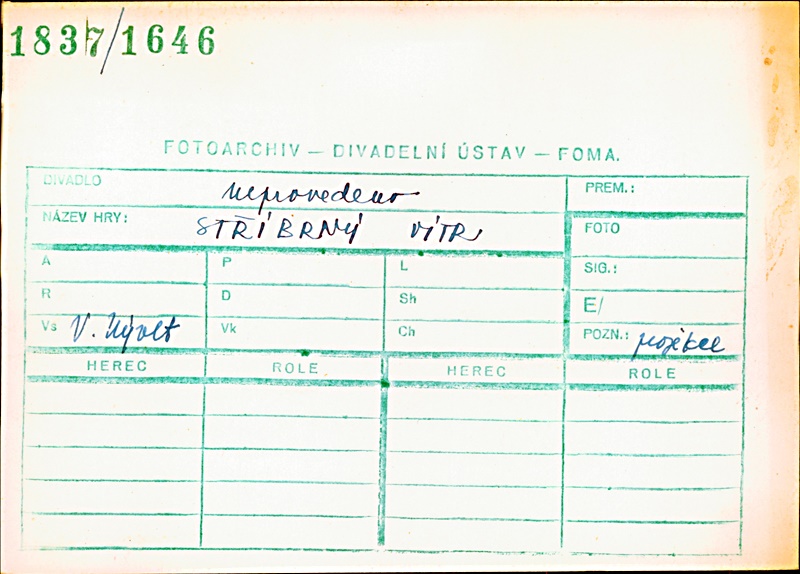 1837/1646
FOTOARCHIV — DIVADELNÍ ÚSTAV — FOMA.
DIVADLO neprovedeno PREM.:
NÁZEV HRY: STŘÍBRNÝ VÍTR FOTO
A P L SIG.:
R D Sh E/
Vs V. Nývlt Vk Ch POZN.: projekce
HEREC ROLE HEREC ROLE